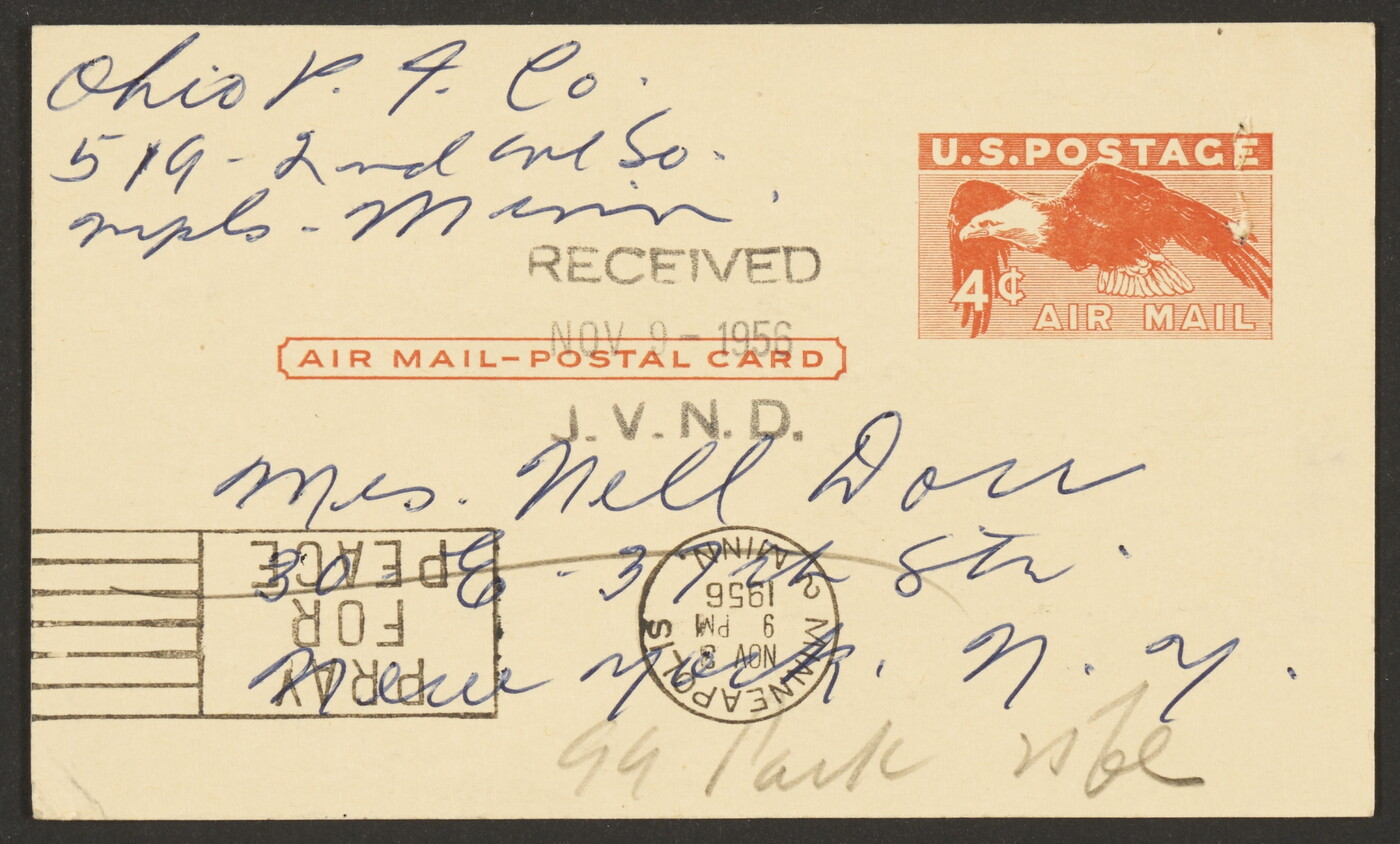 Ohio P. F. Co.
519 - 2nd Ave So.
Mpls - Minn.
U.S.POSTAGE
4¢
AIR MAIL
RECEIVED
NOV 9 - 1956
AIR MAIL-POSTAL CARD
J. V. N. D.
Mrs. Nell Dorr
30 E - 37th Str.
New York. N. Y.
PRAY
FOR
PEACE
MINNEAPOLIS 2 MINN
NOV 8
9 PM
1956
99 Park